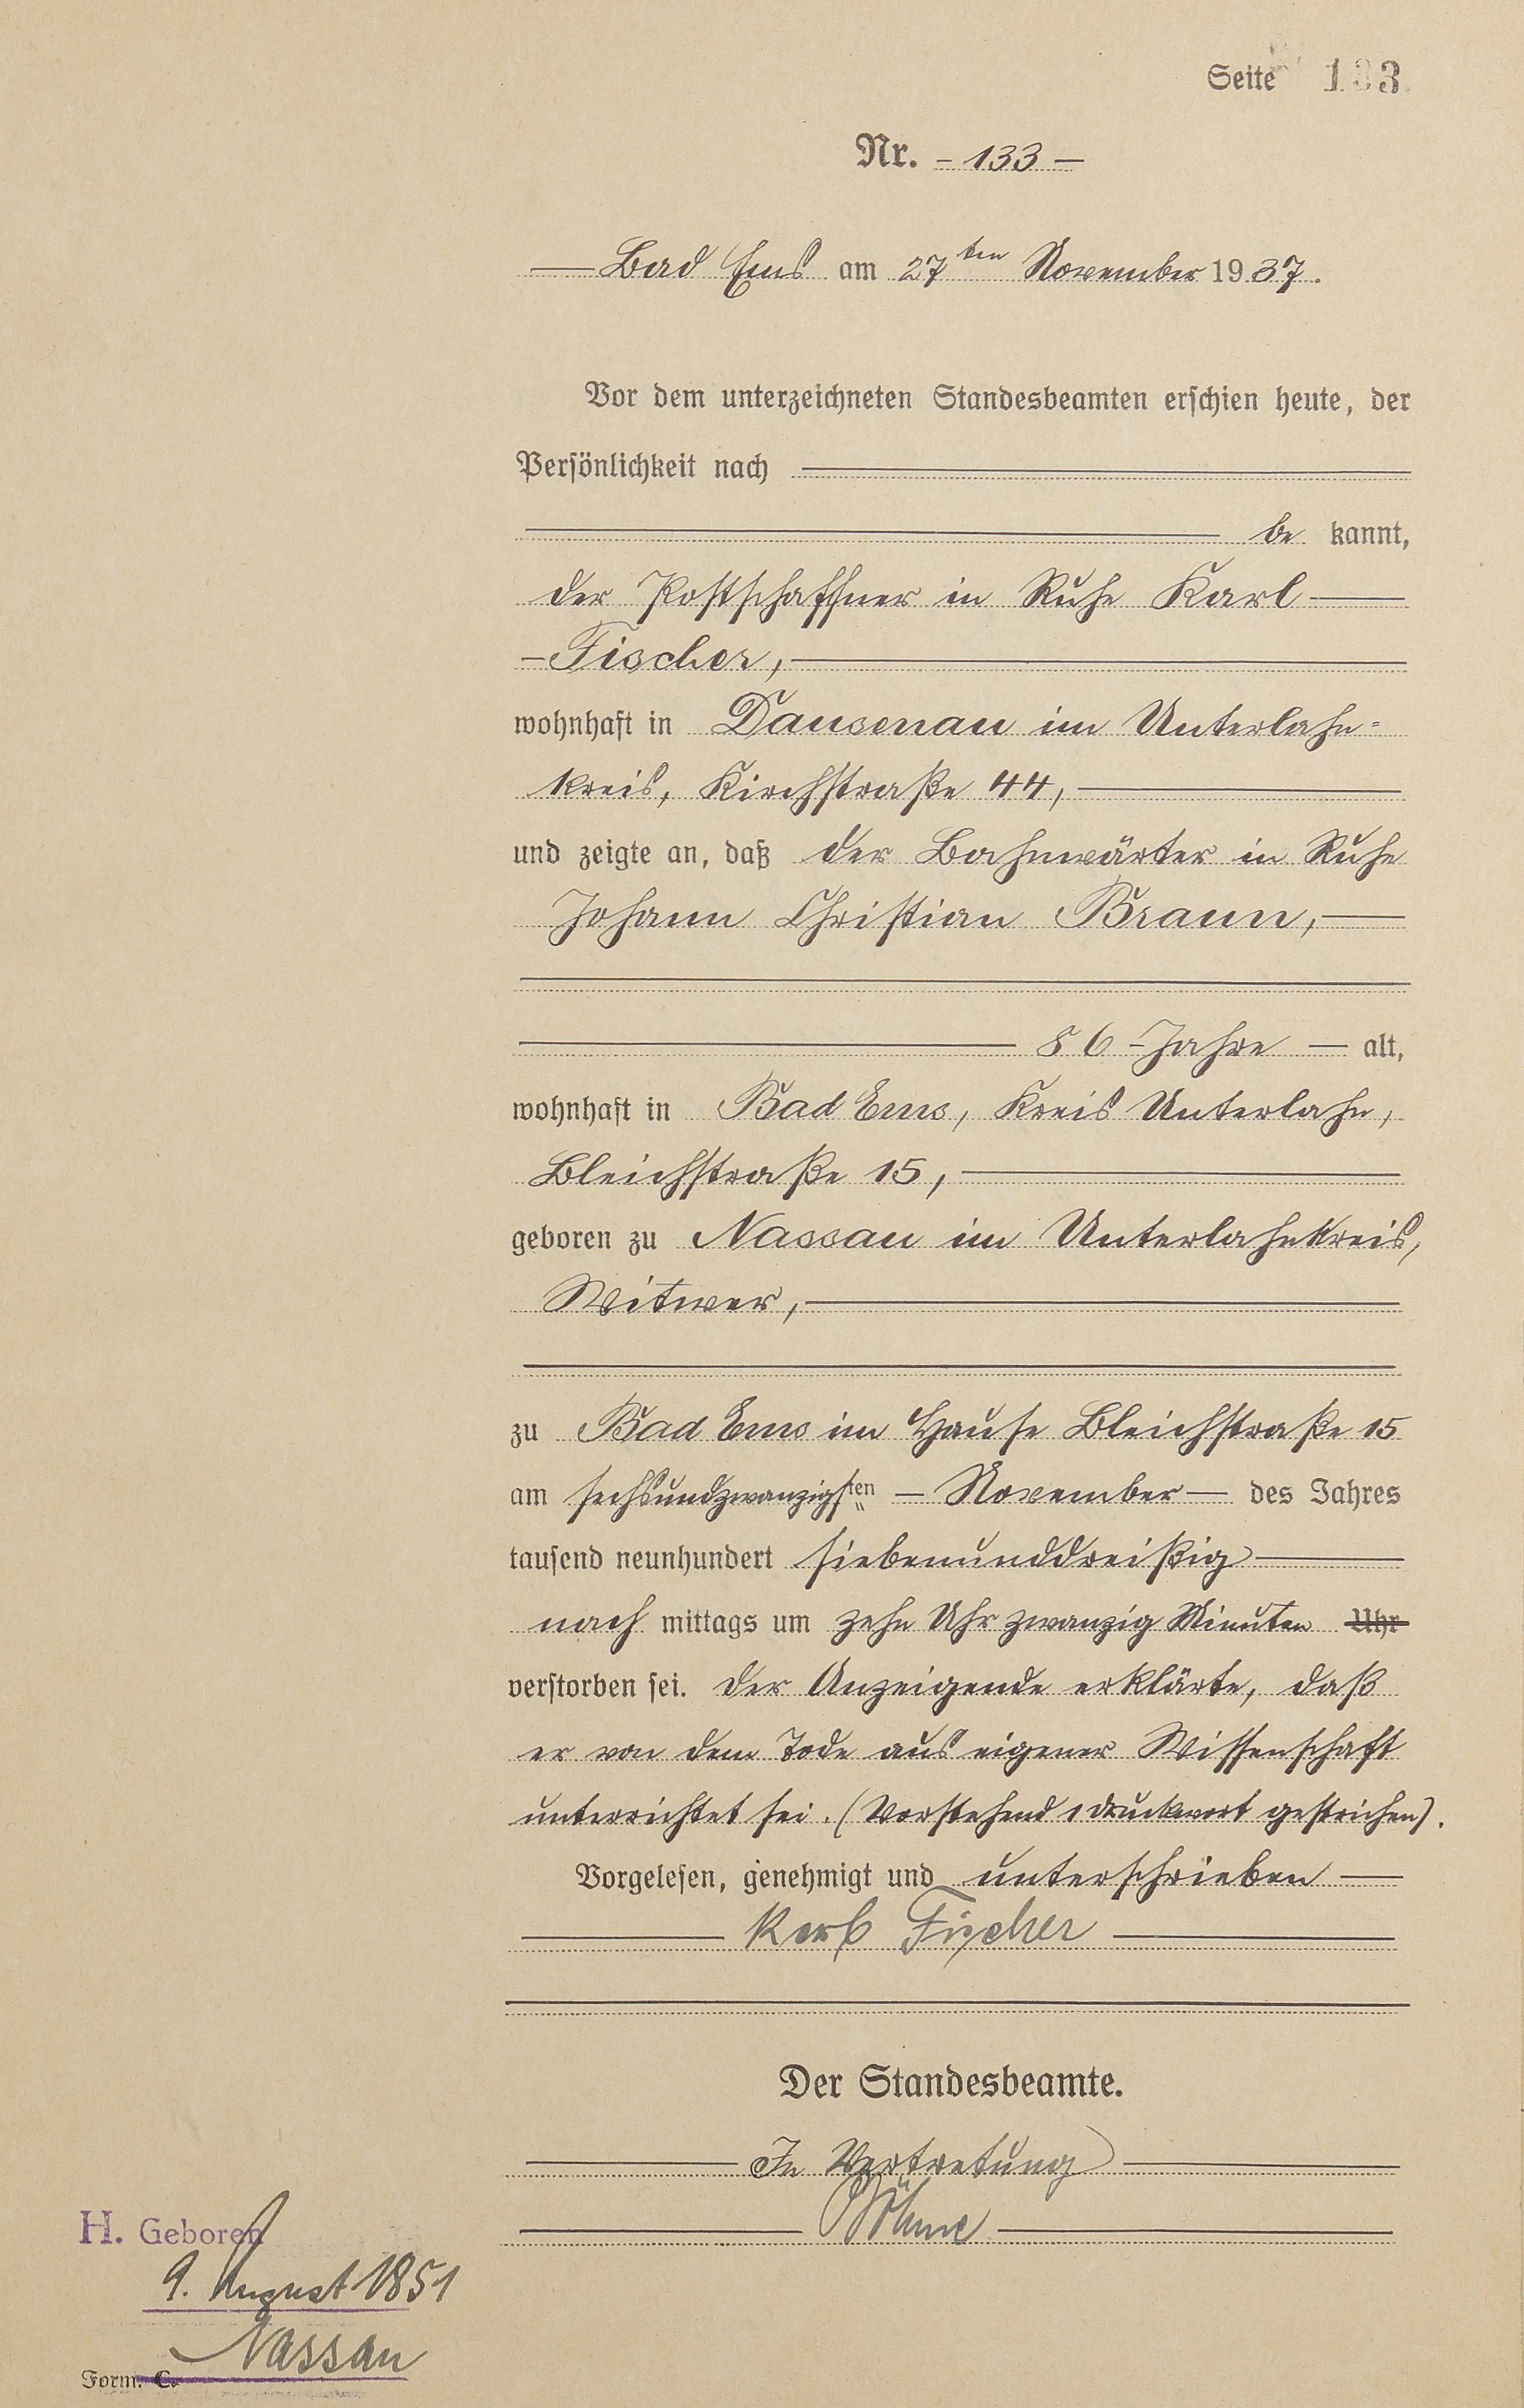 Seite 133
Nr. - 133 -
Bad Ems am 27ten November 1937.
Vor dem unterzeichneten Standesbeamten erschien heute, der
Persönlichkeit nach
be kannt,
der Postschaffner in Ruhe Karl
Fischer,
wohnhaft in Dausenau im Unterlahn=
kreis, Kirchstraße 44,
und zeigte an, daß der Bahnwärter in Ruhe
Johann Christian Braun,
86 Jahre alt,
wohnhaft in Bad Ems, Kreis Unterlahn,
Bleichstraße 15,
geboren zu Nassau im Unterlahnkreis,
Witwer,
zu Bad Ems im Hause Bleichstraße 15
am sechsundzwanzigsten November des Jahres
tausend neunhundert siebenunddreißig
nach mittags um zehn Uhr zwanzig Minuten Uhr
verstorben sei. Der Anzeigende erklärte, daß
er von dem Tode aus eigener Wissenschaft
unterrichtet sei. (Vorstehend 1 Druckwort gestrichen).
Vorgelesen, genehmigt und unterschrieben
Karl Fischer
Der Standesbeamte.
In Vertretung
H. Geboren
9. August 1851
Nassau
Form. C.